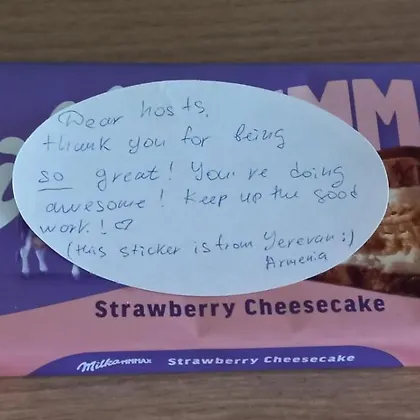 MM
Dear hosts,
thank you for being
so great! You're doing
awesome! Keep up the good
work! ♡
(this sticker is from Yerevan :)
Armenia
Strawberry Cheesecake
Milka MMMAX Strawberry Cheesecake